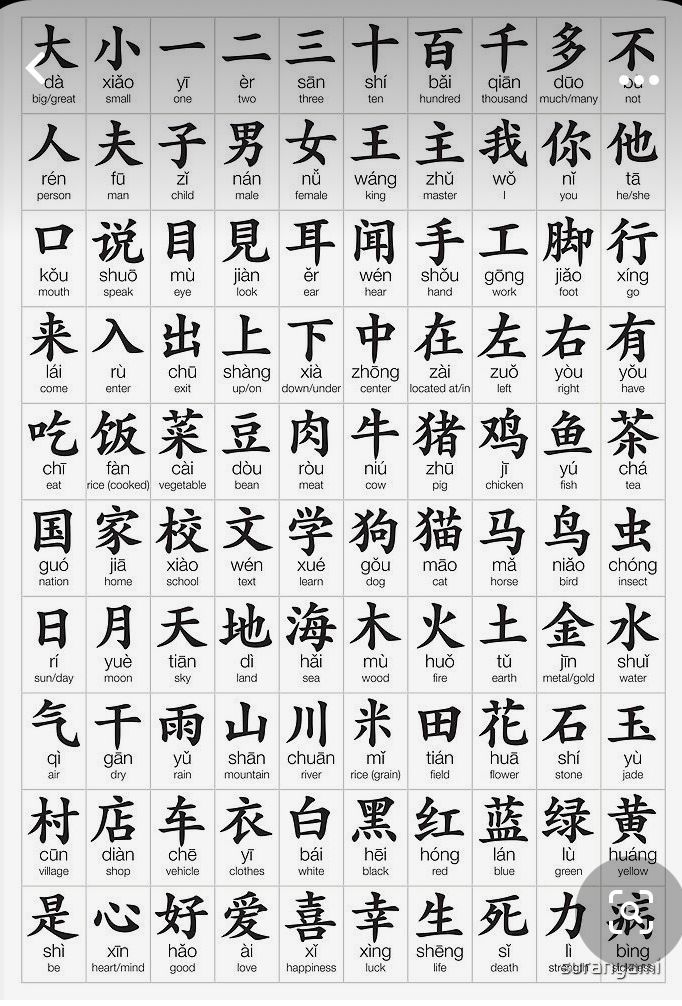 大 小 一 二 三 十 百 千 多 不
dà xiǎo yī èr sān shí bǎi qiān duō
big/great small one two three ten hundred thousand much/many not
人 夫 子 男 女 王 主 我 你 他
rén fū zǐ nán nǚ wáng zhǔ wǒ nǐ tā
person man child male female king master I you he/she
口 说 目 見 耳 闻 手 工 脚 行
kǒu shuō mù jiàn ěr wén shǒu gōng jiǎo xíng
mouth speak eye look ear hear hand work foot go
来 入 出 上 下 中 在 左 右 有
lái rù chū shàng xià zhōng zài zuǒ yòu yǒu
come enter exit up/on down/under center located at/in left right have
吃 饭 菜 豆 肉 牛 猪 鸡 鱼 茶
chī fàn cài dòu ròu niú zhū jī yú chá
eat rice (cooked) vegetable bean meat cow pig chicken fish tea
国 家 校 文 学 狗 猫 马 鸟 虫
guó jiā xiào wén xué gǒu māo mǎ niǎo chóng
nation home school text learn dog cat horse bird insect
日 月 天 地 海 木 火 土 金 水
rí yuè tiān dì hǎi mù huǒ tǔ jīn shuǐ
sun/day moon sky land sea wood fire earth metal/gold water
气 干 雨 山 川 米 田 花 石 玉
qì gān yǔ shān chuān mǐ tián huā shí yù
air dry rain mountain river rice (grain) field flower stone jade
村 店 车 衣 白 黑 红 蓝 绿 黄
cūn diàn chē yī bái hēi hóng lán lù huáng
village shop vehicle clothes white black red blue green yellow
是 心 好 爱 喜 幸 生 死 力 病
shì xīn hǎo ài xǐ xìng shēng sǐ lì bìng
be heart/mind good love happiness luck life death
surangami